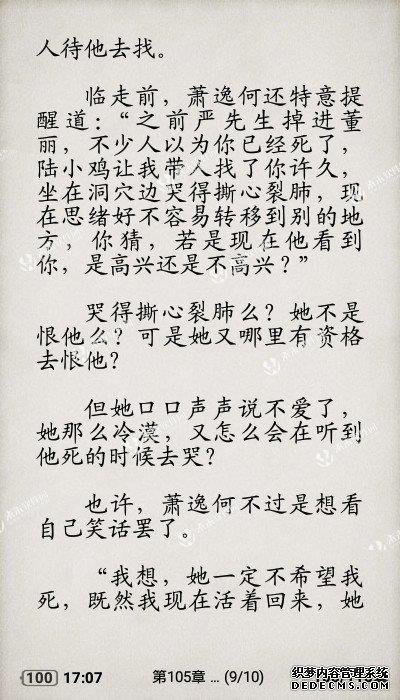 人待他去找。
临走前，萧逸何还特意提
醒道：“之前严先生掉进董
丽，不少人以为你已经死了，
陆小鸡让我带人找了你许久，
坐在洞穴边哭得撕心裂肺，现
在思绪好不容易转移到别的地
方，你猜，若是现在他看到
你，是高兴还是不高兴？”
哭得撕心裂肺么？她不是
恨他么？可是她又哪里有资格
去恨他？
但她口口声声说不爱了，
她那么冷漠，又怎么会在听到
他死的时候去哭？
也许，萧逸何不过是想看
自己笑话罢了。
“我想，她一定不希望我
死，既然我现在活着回来，她
100 17:07 第105章 ... (9/10)
织梦内容管理系统
DEDECMS.COM